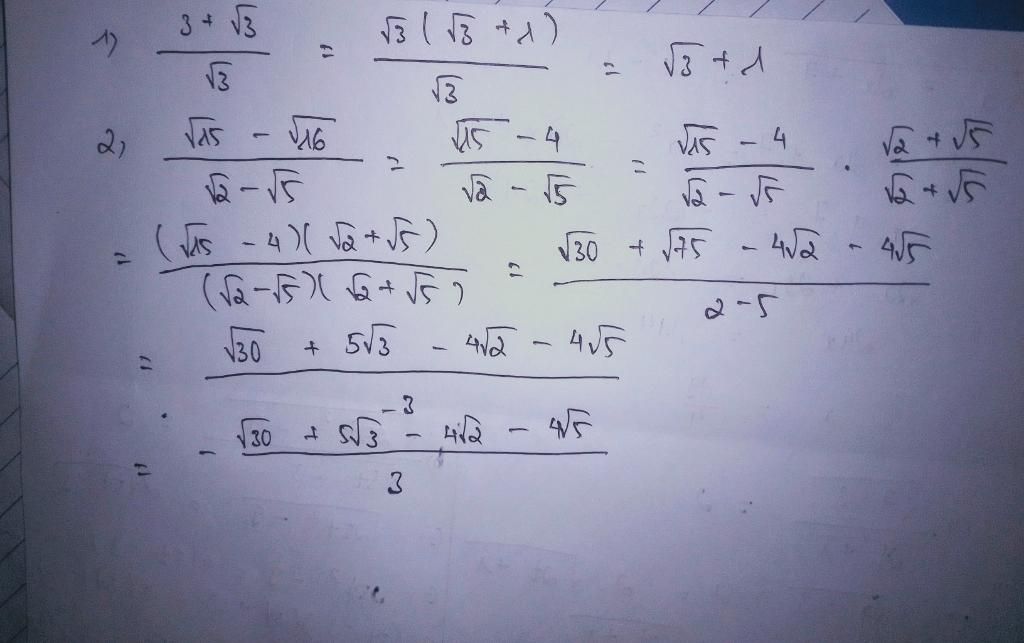 1) (3 + √3)/√3 = √3(√3 + 1)/√3 = √3 + 1
2) (√15 - √16)/(√2 - √5) = (√15 - 4)/(√2 - √5) = (√15 - 4)/(√2 - √5) · (√2 + √5)/(√2 + √5)
= (√15 - 4)(√2 + √5)/(√2 - √5)(√2 + √5) = (√30 + √75 - 4√2 - 4√5)/(2 - 5)
= (√30 + 5√3 - 4√2 - 4√5)/(-3)
= - (√30 + 5√3 - 4√2 - 4√5)/3